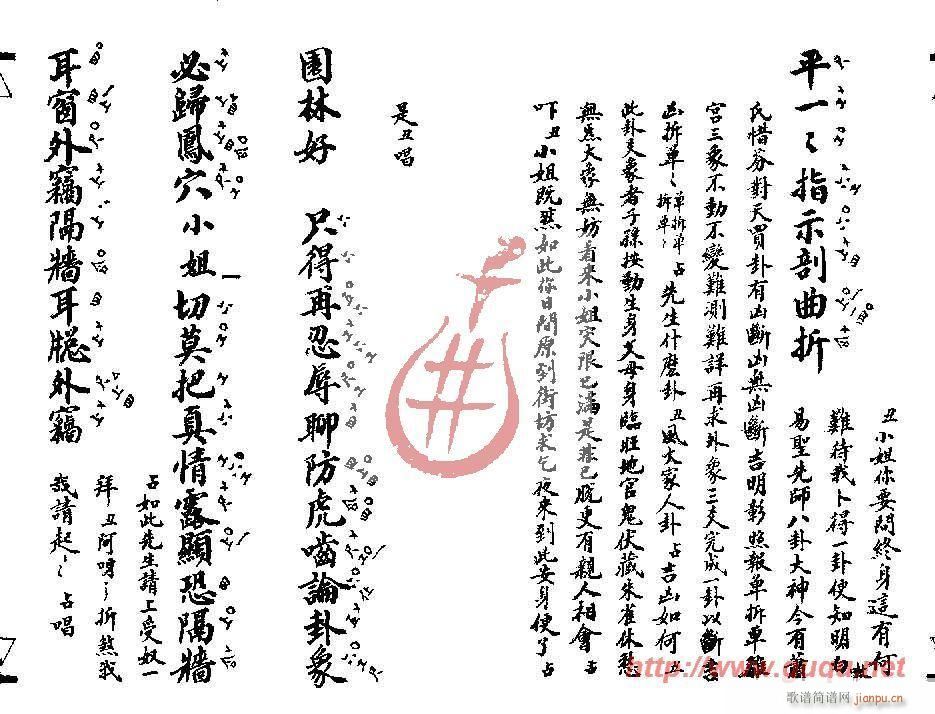 平一〻指示剖曲折
丑小姐你要問終身這有何
難待我卜得一卦便知明白
易聖先師八卦大神今有蕭
氏惜芬對天買卦有凶斷凶無凶斷吉明彰照報單拆單
宮三象不動不變難測難詳再求外象三爻完成一卦以斷吉
凶拆單〻單拆單拆單〻占先生什麽卦丑風火家人卦占吉凶如何丑
此卦爻象者子孫按動生身父母身臨旺地官鬼伏藏朱雀休
無㷊大象無妨看來小姐灾限已滿是非已脫更有親人相會占
吓丑小姐既然如此你日間原到街坊求乞夜來到此安身便了占
是丑唱
園林好 只得再忍辱聊防虎嚙論卦象
必歸鳳穴小姐切莫把真情露顯恐隔牆
占如此先生請上受奴一
拜丑阿呀〻折煞我
耳窗外竊隔牆耳牕外竊
我請起〻占唱
http://www.ququ.net
歌谱简谱网
jianpu.cn